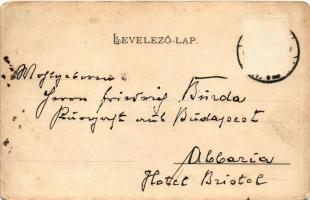 LEVELEZŐ-LAP.
Wohlgeboren
Herrn Friedrich Burda
Kurgast aus Budapest
Abbazia
Hotel Bristol